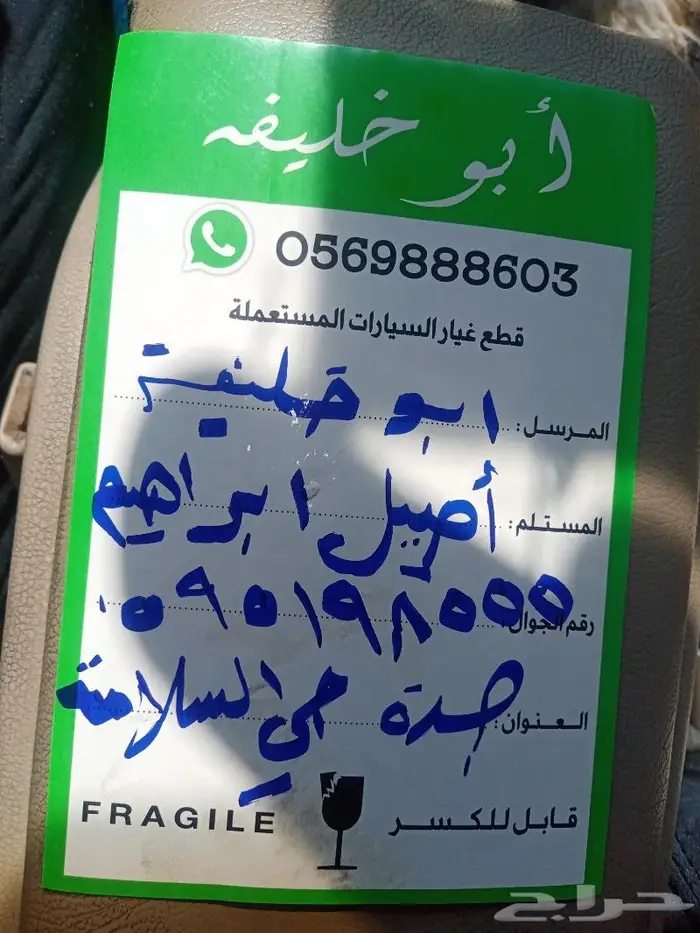 أبو خليفه
0569888603
قطع غيار السيارات المستعملة
المرسل: ابو خليفة
المستلم: أصيل ابراهيم
رقم الجوال: ٠٥٩٥١٩٨٥٥٥
العنوان: جدة حي السلامة
FRAGILE قابل للكسر
حراج